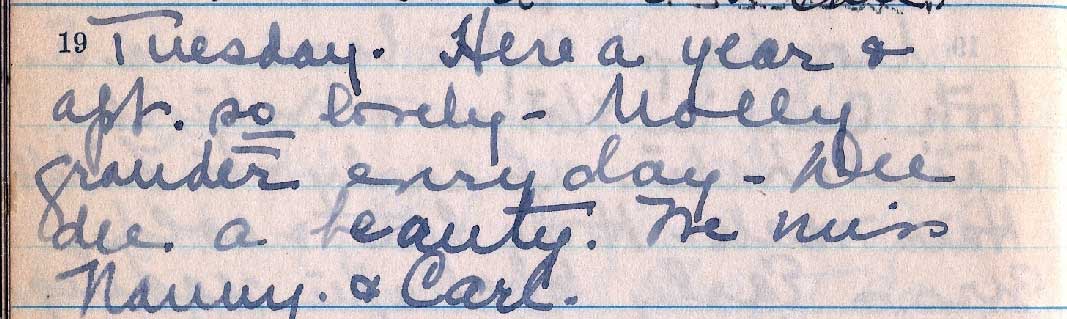 19 Tuesday. Here a year &
apt. so lovely - Molly
grander every day - Dee
dee a beauty. We miss
Nanny. & Carl.